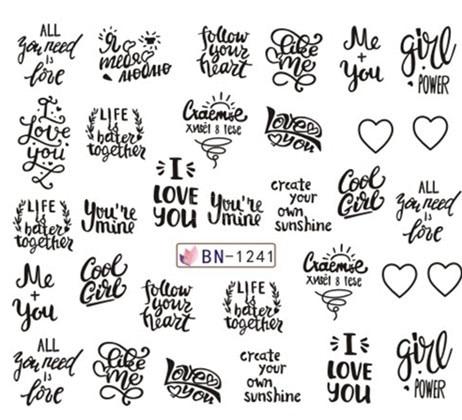 ALL
you need
is
love
Я
тебя
люблю
follow
your
heart
like
me
Me
+
You
girl
POWER
I
Love
you
LIFE
is
better
together
Счастье
живёт в тебе
Love
you
I
LOVE
YOU
LIFE
is
better
together
You're
mine
You're
mine
create
your
own
sunshine
Cool
Girl
ALL
you need
is
love
BN-1241
Me
+
You
Cool
Girl
follow
your
heart
LIFE
is
better
together
Счастье
живёт в тебе
ALL
you need
is
love
like
me
Love
you
create
your
own
sunshine
I
LOVE
YOU
girl
POWER